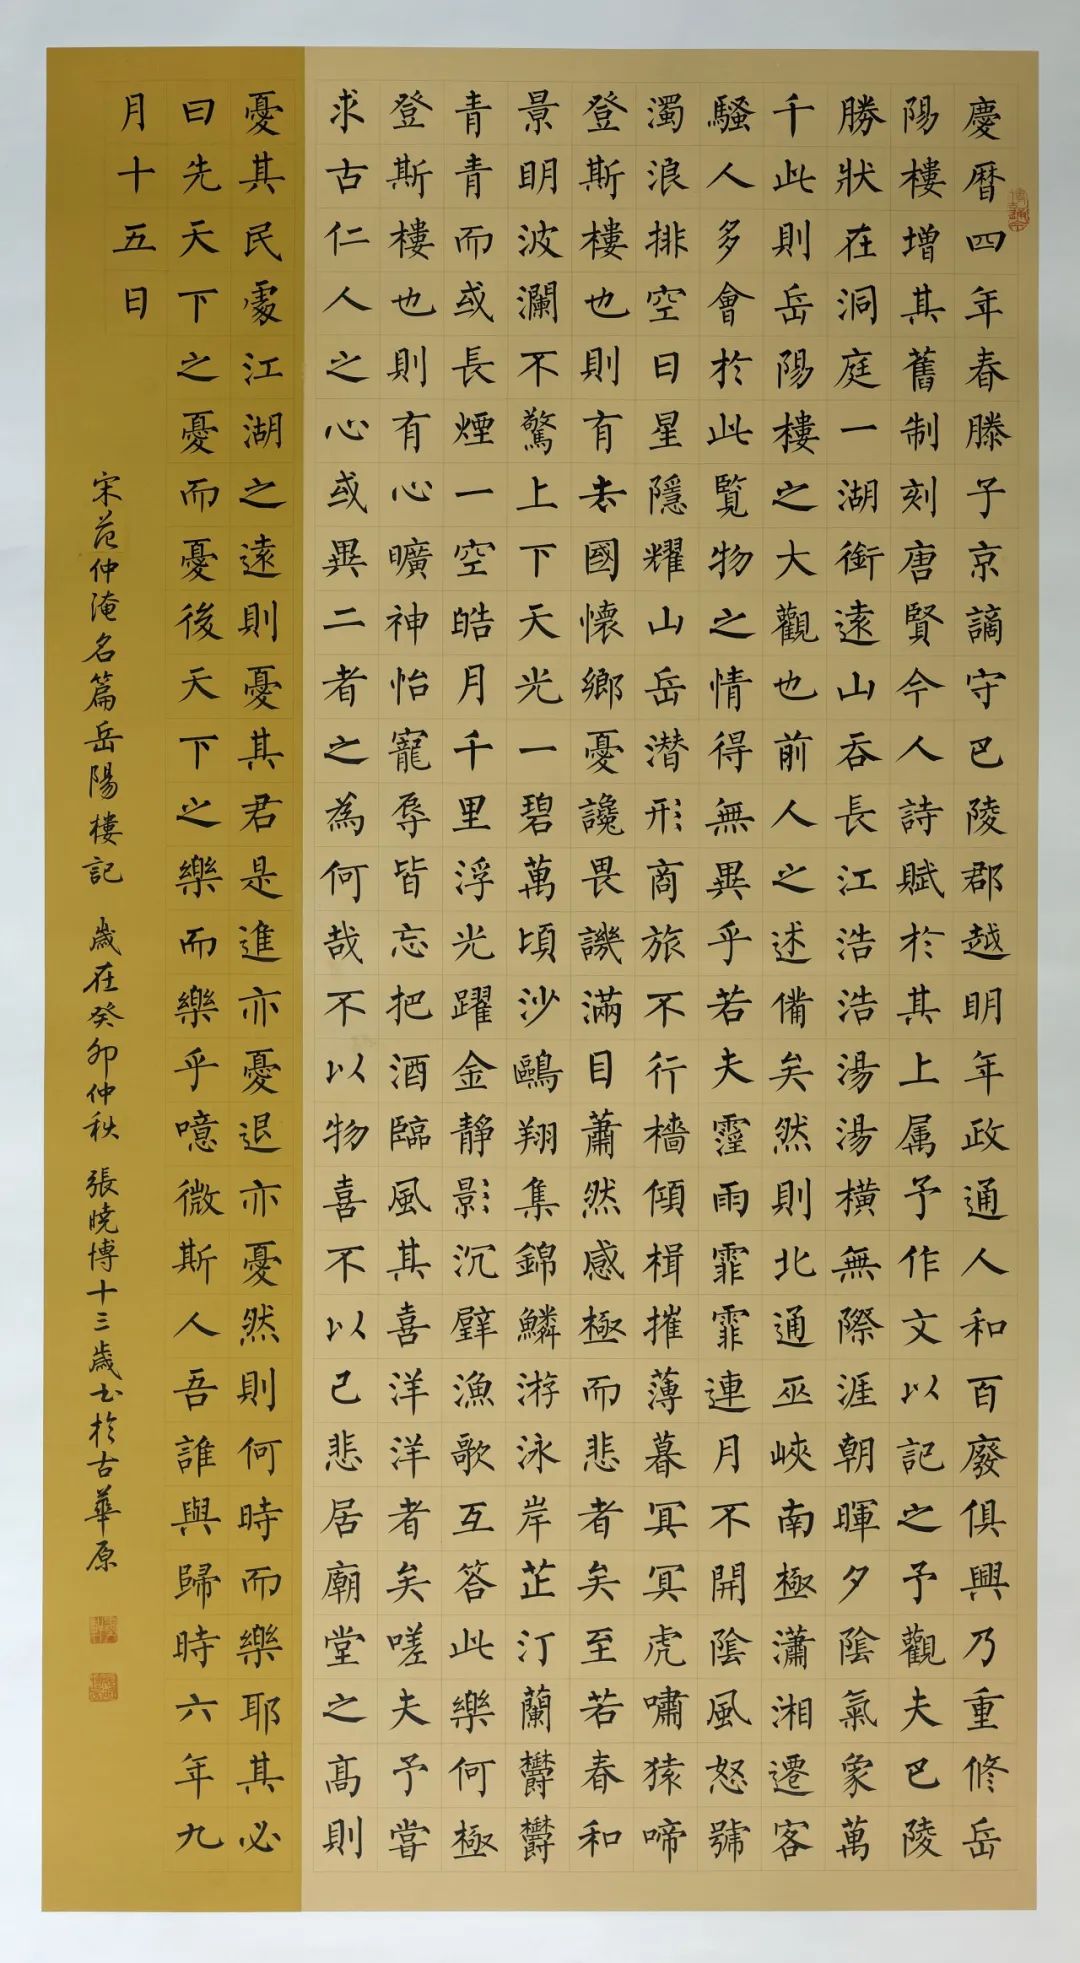 慶曆四年春滕子京謫守巴陵郡越明年政通人和百廢俱興乃重修岳
陽樓增其舊制刻唐賢今人詩賦於其上属予作文以記之予觀夫巴陵
勝狀在洞庭一湖銜遠山吞長江浩浩湯湯橫無際涯朝暉夕陰氣象萬
千此則岳陽樓之大觀也前人之述備矣然則北通巫峽南極瀟湘遷客
騷人多會於此覧物之情得無異乎若夫霪雨霏霏連月不開陰風怒號
濁浪排空日星隱耀山岳潜形商旅不行檣傾楫摧薄暮冥冥虎嘯猿啼
登斯樓也則有去國懷鄉憂讒畏譏滿目蕭然感極而悲者矣至若春和
景明波瀾不驚上下天光一碧萬頃沙鷗翔集錦鱗游泳岸芷汀蘭欝欝
青青而或長煙一空皓月千里浮光躍金靜影沉璧漁歌互答此樂何極
登斯樓也則有心曠神怡寵辱皆忘把酒臨風其喜洋洋者矣嗟夫予嘗
求古仁人之心或異二者之為何哉不以物喜不以己悲居廟堂之高則
憂其民處江湖之遠則憂其君是進亦憂退亦憂然則何時而樂耶其必
曰先天下之憂而憂後天下之樂而樂乎噫微斯人吾誰與歸時六年九
月十五日
宋范仲淹名篇岳陽樓記 歲在癸卯仲秋 張曉博十三歲书於古華原